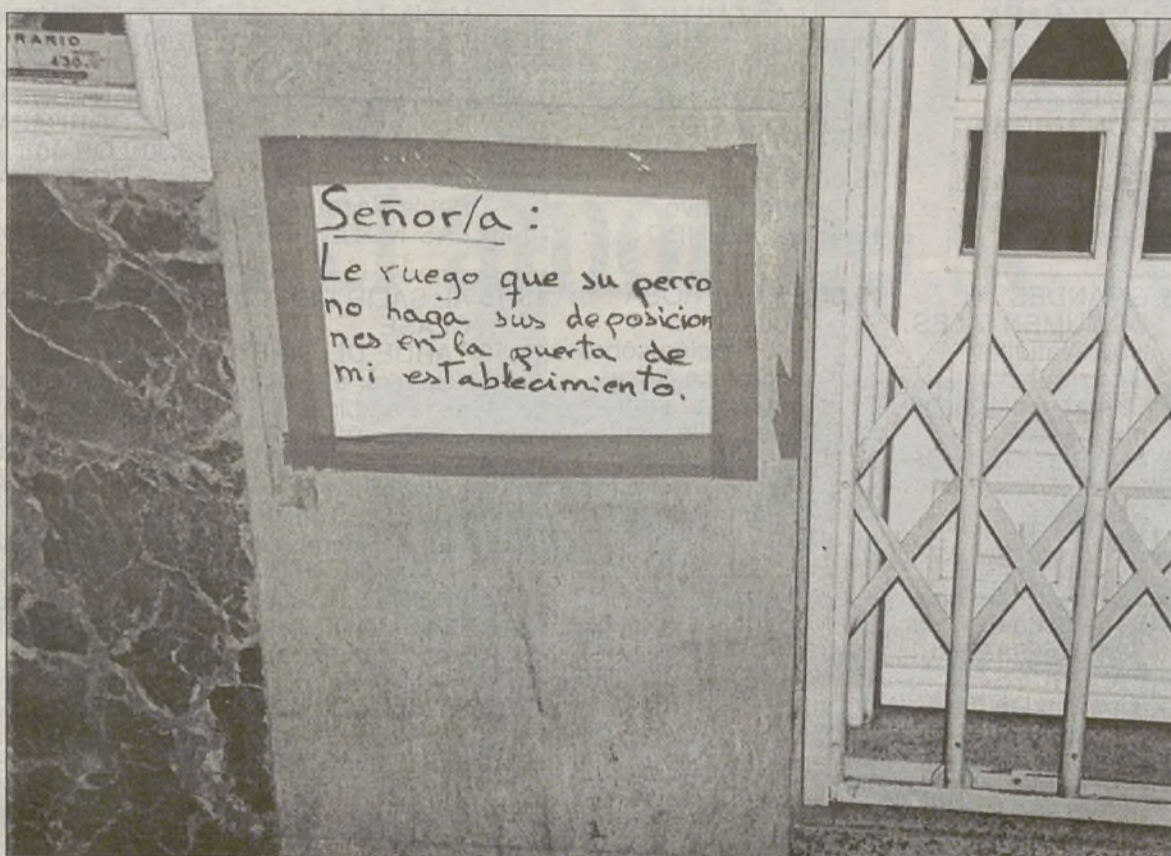 RARIO
430
Señor/a:
Le ruego que su perro
no haga sus deposicion
nes en la puerta de
mi establecimiento.